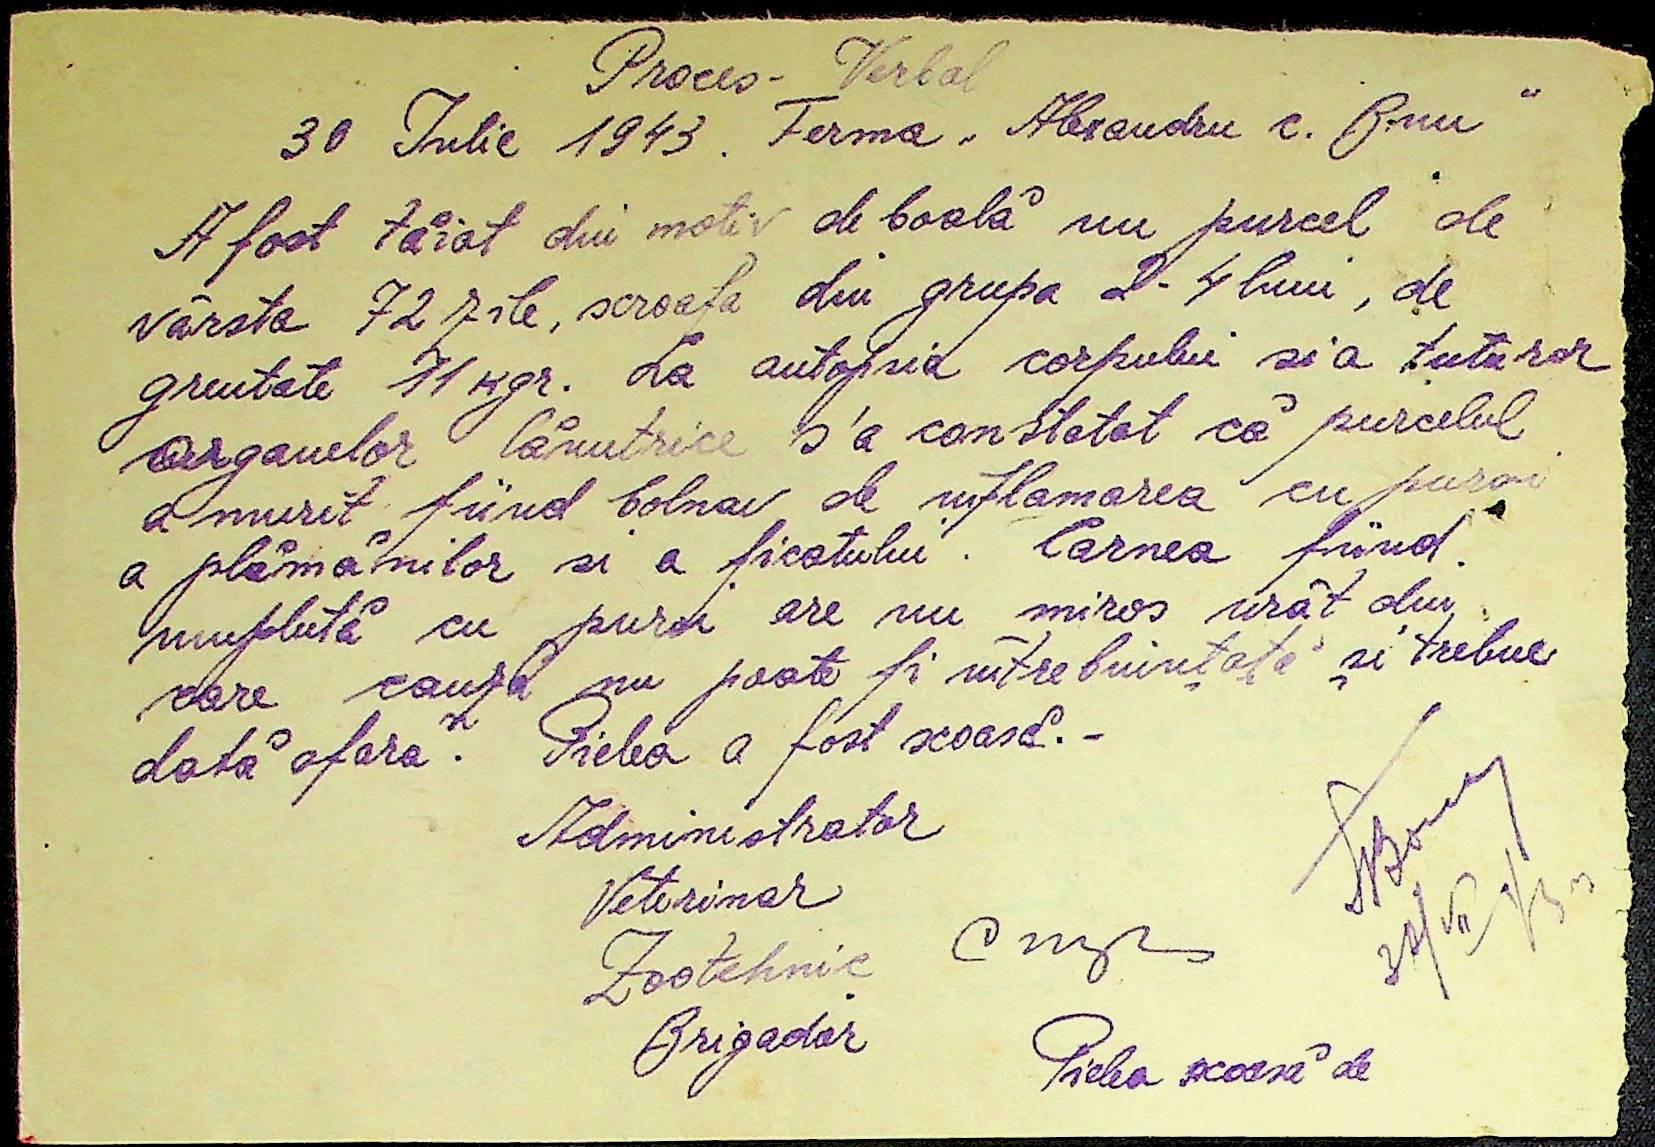 Proces- Verbal
30 Iulie 1943. Ferma „Alexandru c. B-nu"
A fost tăiat din motiv de boală un purcel de
vârsta 72 zile, scroafa din grupa 2-4 luni, de
greutate 11 kgr. La autopsia corpului si a tuturor
organelor lăuntrice s'a constatat că purcelul
a murit fiind bolnav de inflamarea cu puroi
a plămânilor si a ficatului. Carnea fiind
umplută cu puroi are un miros urât din
care cauză nu poate fi intrebuințată și trebue
dată afară. Pielea a fost scoasă.-
Administrator
Veterinar
Zootehnic
Brigadar
Pielea scoasă de